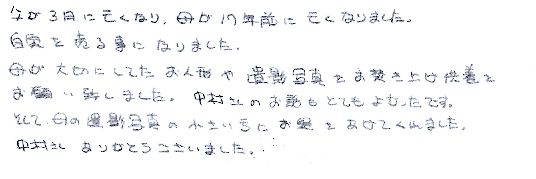 父が3日に亡くなり、母が17年前に亡くなりました。
自宅を売る事になりました。
母が大切にしてたお人形や遺影写真をお焚き上げ供養を
お願い致しました。中村さんのお話もとてもよかったです。
そして母の遺影写真の小さいうちにお髪をあげてくれました。
中村さんありがとうございました。